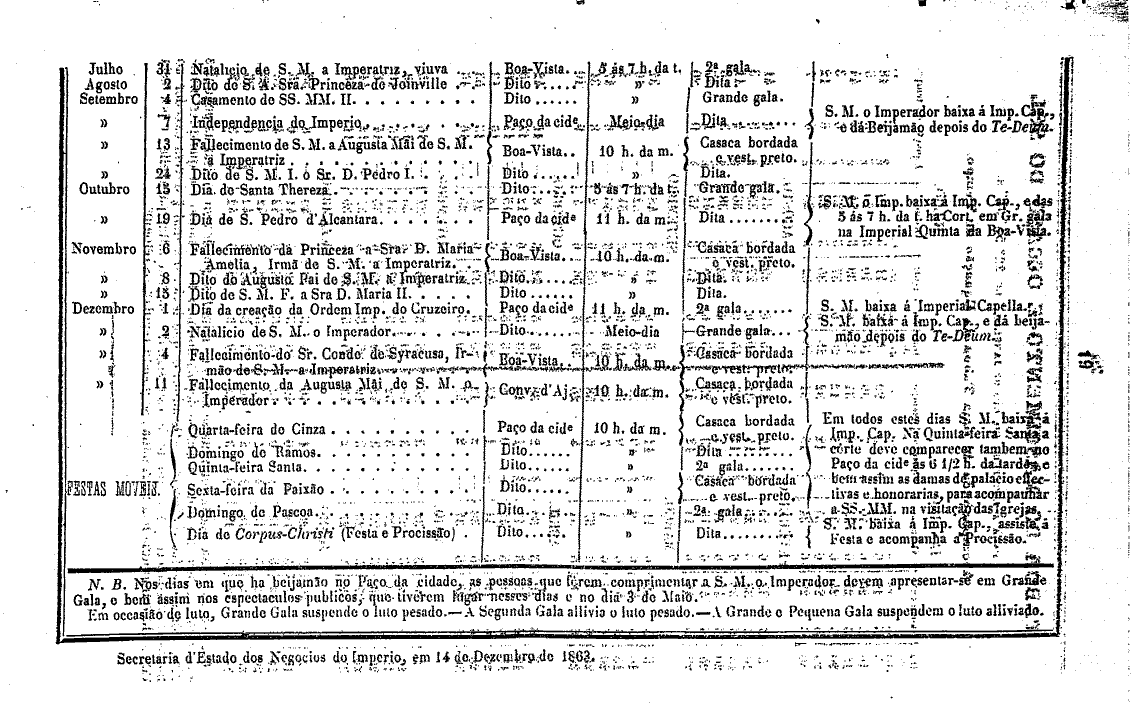 Julho 31 Natalicio de S. M. a Imperatriz, viuva . . Boa-Vista. . 5 ás 7 h. da t. 2ª gala.
Agosto 2 Dito de S. A. Sra. Princeza de Joinville . . Dito . . . . . . » Dita.
Setembro 4 Casamento de SS. MM. II. . . . . . . . . Dito . . . . . . » Grande gala.
» 7 Independencia do Imperio. . . . . . . . Paço da cide Meio-dia Dita. . . . . . . S. M. o Imperador baixa á Imp. Cap.,
e dá Beijamão depois do Te-Deum.
» 13 Fallecimento de S. M. a Augusta Mãi de S. M.
a Imperatriz . . . . . . . . . . . . Boa-Vista. . 10 h. da m. Casaca bordada
e vest. preto.
» 24 Dito de S. M. I. o Sr. D. Pedro I. . . . . Dito . . . . . . » Dita.
Outubro 15 Dia de Santa Thereza. . . . . . . . . . Dito . . . . . . 5 ás 7 h. da t. Grande gala.
» 19 Dia de S. Pedro d'Alcantara. . . . . . . Paço da cide 11 h. da m. Dita . . . . . . . . S. M. o Imp. baixa á Imp. Cap., e das
5 ás 7 h. da t. ha Cort. em Gr. gala
na Imperial Quinta da Boa-Vista.
Novembro 6 Fallecimento da Princeza a Sra. D. Maria
Amelia, Irmã de S. M. a Imperatriz. . . Boa-Vista. . 10 h. da m. Casaca bordada
e vest. preto.
» 8 Dito do Augusto Pai de S. M. a Imperatriz Dito . . . . . . » Dita.
» 15 Dito de S. M. F. a Sra D. Maria II. . . . . Dito . . . . . . » Dita.
Dezembro 1 Dia da creação da Ordem Imp. do Cruzeiro. Paço da cide 11 h. da m. 2ª gala. . . . . . S. M. baixa á Imperial Capella.
» 2 Natalicio de S. M. o Imperador. . . . . . Dito . . . . . . Meio-dia Grande gala. . . S. M. baixa á Imp. Cap., e dá beija-
mão depois do Te-Deum.
» 4 Fallecimento do Sr. Conde de Syracusa, Ir-
mão de S. M. a Imperatriz. . . . . . . Boa-Vista. 10 h. da m. Casaca bordada
e vest. preto.
» 11 Fallecimento da Augusta Mãi de S. M. o
Imperador . . . . . . . . . . . . Conv. d'Aj. 10 h. da m. Casaca bordada
e vest. preto.
FESTAS MOVEIS.
Quarta-feira de Cinza . . . . . . . . . . Paço da cide 10 h. da m. Casaca bordada
e vest. preto.
Domingo de Ramos. . . . . . . . . . . Dito . . . . . . » Dita . . . . . .
Quinta-feira Santa. . . . . . . . . . . . Dito . . . . . . » 2ª gala . . . . . .
Sexta-feira da Paixão . . . . . . . . . . Dito . . . . . . » Casaca bordada
e vest. preto.
Domingo de Pascoa. . . . . . . . . . . Dito . . . . . . » 2ª gala . . . . . .
Dia de Corpus-Christi (Festa e Procissão) . Dito . . . . . . » Dita . . . . . . . .
Em todos estes dias S. M. baixa á
Imp. Cap. Na Quinta-feira Santa a
côrte deve comparecer tambem no
Paço da cide ás 6 1/2 h. da tarde, e
bem assim as damas de palacio effec-
tivas e honorarias, para acompanhar
a SS. MM. na visitação das Igrejas.
S. M. baixa á Imp. Cap., assiste á
Festa e acompanha a Procissão.
N. B. Nos dias em que ha beijamão no Paço da cidade, as pessoas que forem comprimentar a S. M. o Imperador devem apresentar-se em Grande
Gala, e bem assim nos espectaculos publicos, que tiverem lugar nesses dias e no dia 3 de Maio.
Em occasião de luto, Grande Gala suspende o luto pesado.—A Segunda Gala allivia o luto pesado.—A Grande e Pequena Gala suspendem o luto alliviado.
Secretaria d'Estado dos Negocios do Imperio, em 14 de Dezembro de 1863.
19